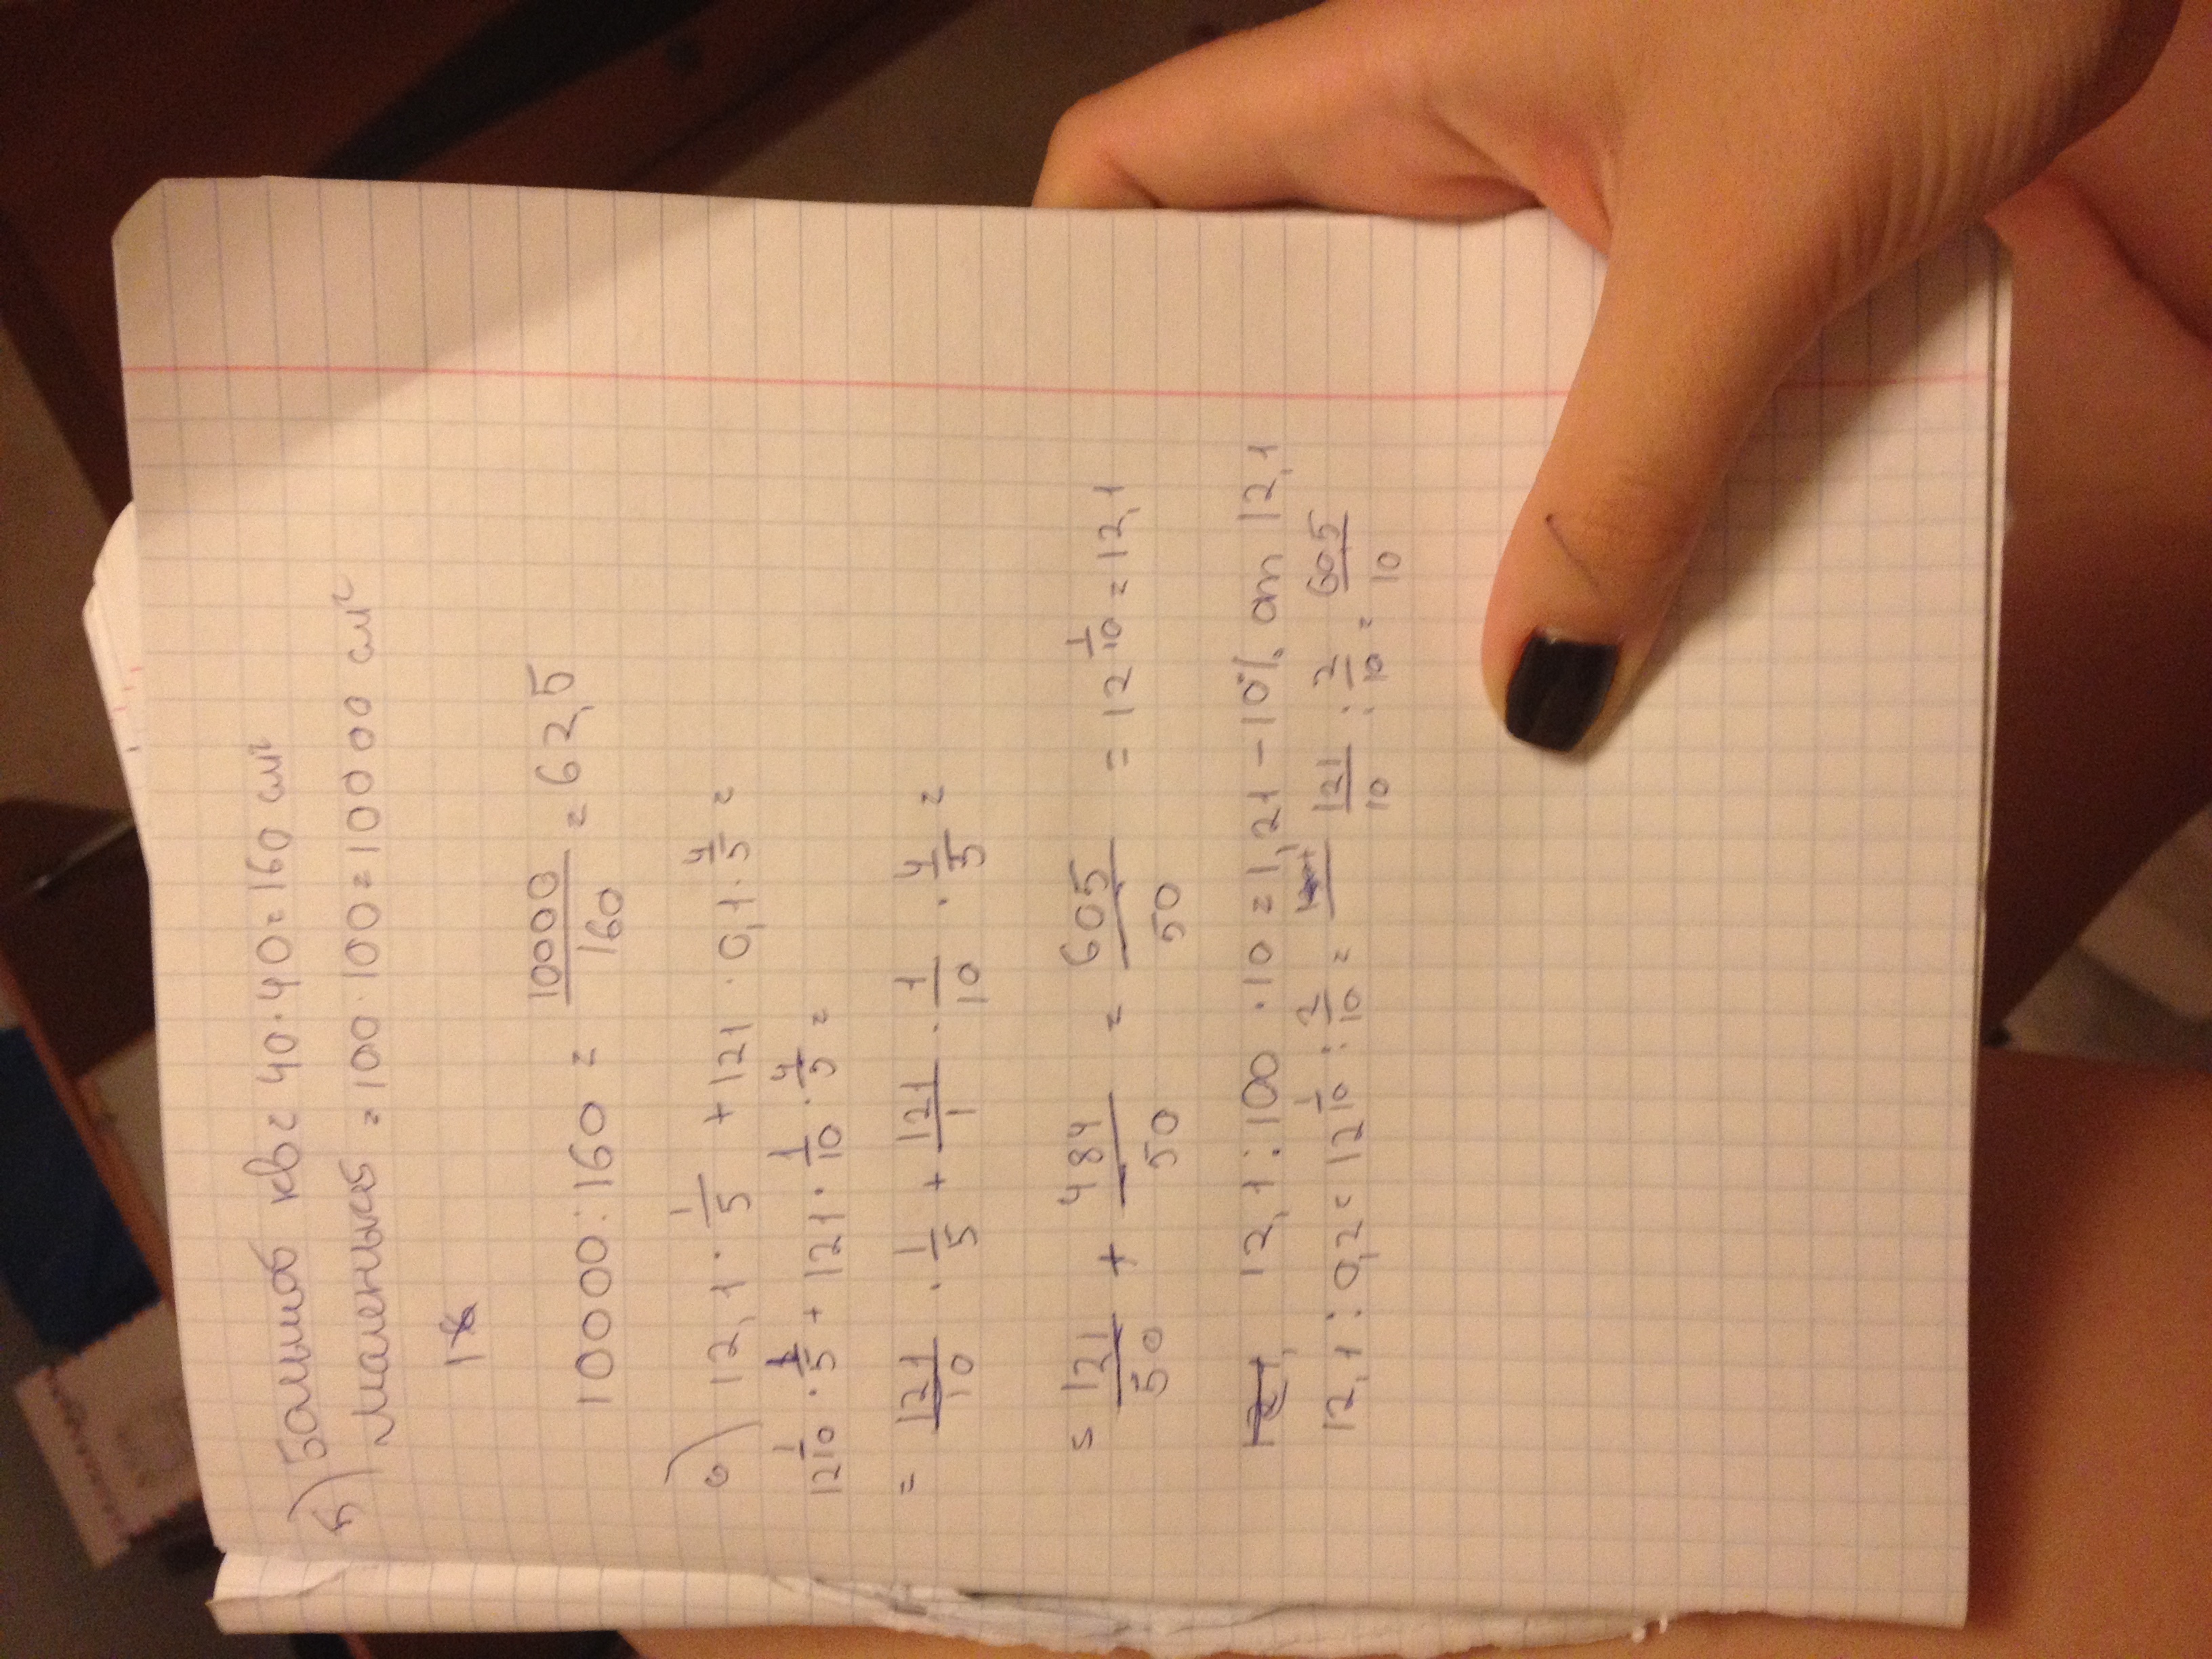 5) Большой кв = 40·40=160 см²
маленький = 100·100=10000 см²
10000:160 = 10000/160 = 62,5
6) 12,1 · 1/5 + 121 · 0,1 · 4/5 =
12 1/10 · 1/5 + 121 · 1/10 · 4/5 =
= 121/10 · 1/5 + 121/1 · 1/10 · 4/5 =
= 121/50 + 484/50 = 605/50 = 12 1/10 = 12,1
12,1 : 100 · 10 = 1,21 – 10% от 12,1
12,1 : 0,2 = 12 1/10 : 2/10 = 121/10 : 2/10 = 605/10